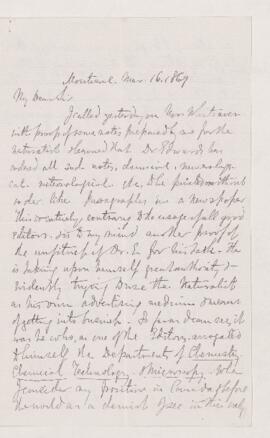 Montreal Mar. 16. 1869
My Dear Sir
I called yesterday on Mr Whiteaves
with proof of some notes prepared by me for the
naturalist & learned that Dr Edwards has
ordered all such notes, chemical, mineralogi-
cal, meteorological etc, to be printed without
order like paragraphs in a newspaper
this is entirely contrary to the usage of all good
editors & is to my mind another proof of
the unfitness of Dr. E. for his task. He
is taking upon himself great authority, e-
vidently trying to use the Naturalist
as his own advertising medium & means
of getting into business. So far as I can see, it
was he who, as one of the Editors, arrogated
to himself the Departments of Chemistry,
Chemical Technology & Microscopy. When
I consider my position in Canada & before
the world as a chemist I see in this only